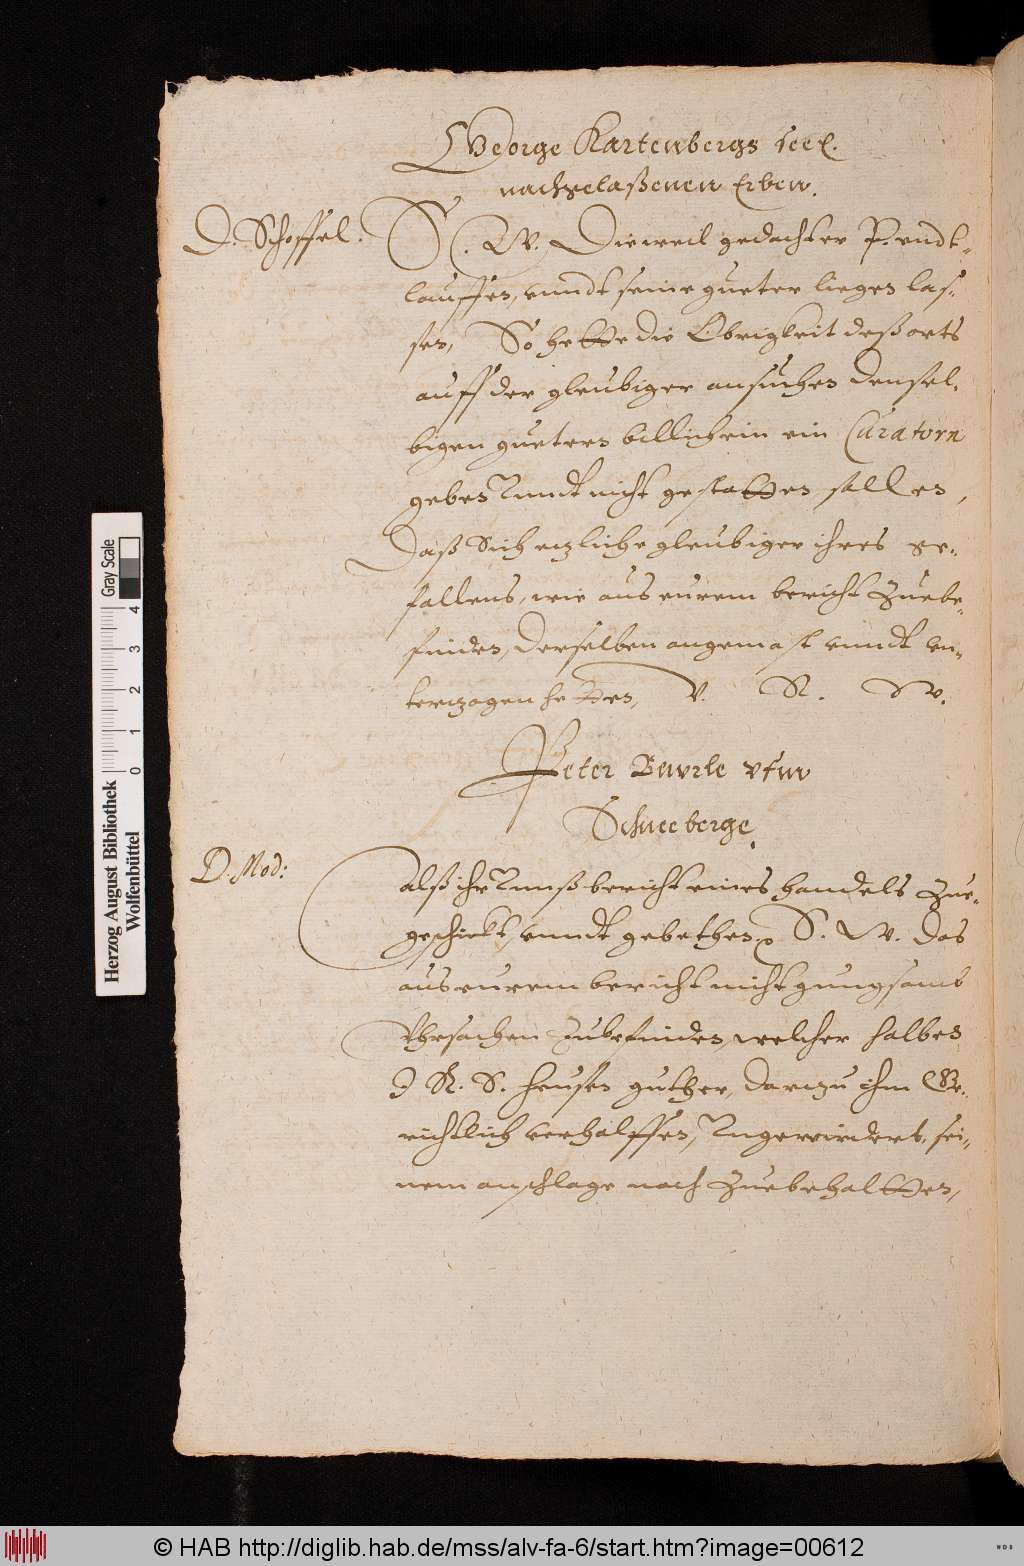 George Kartenbergs seel.
nachgelaßenen Erben.
D. Schoffel.
S. W. Dieweil gedachter P. endt-
lauffen, vnndt seine gueter liegen las-
sen, So hette die Obrigkeit deß orts
auff der gleubiger ansuchen densel-
bigen guetern billich ein Curatorn
geben vnndt nicht gestatten sollen,
Daß Sich ezliche gleubiger ihres ge-
fallens, wie aus eurem bericht Zuebe-
finden, derselben angemast vnndt vn-
terzogen hetten, V. R. W.
Peter Beurle vfm
Schneeberge.
D. Mod:
alß ihr vnnß bericht eines handels Zue-
geschickt, vnndt gebethen S. W. das
aus eurem bericht nicht gnugsamb
Vhrsachen Zubefinden, welcher halben
J R. S. heuser gutter, darzu ihm Ge-
richtlich verholffen, Jngewirdert, sei-
nem anschlage nach Zuebehalten,
Herzog August Bibliothek
Wolfenbüttel
0 1 2 3 4
Gray Scale
© HAB http://diglib.hab.de/mss/alv-fa-6/start.htm?image=00612